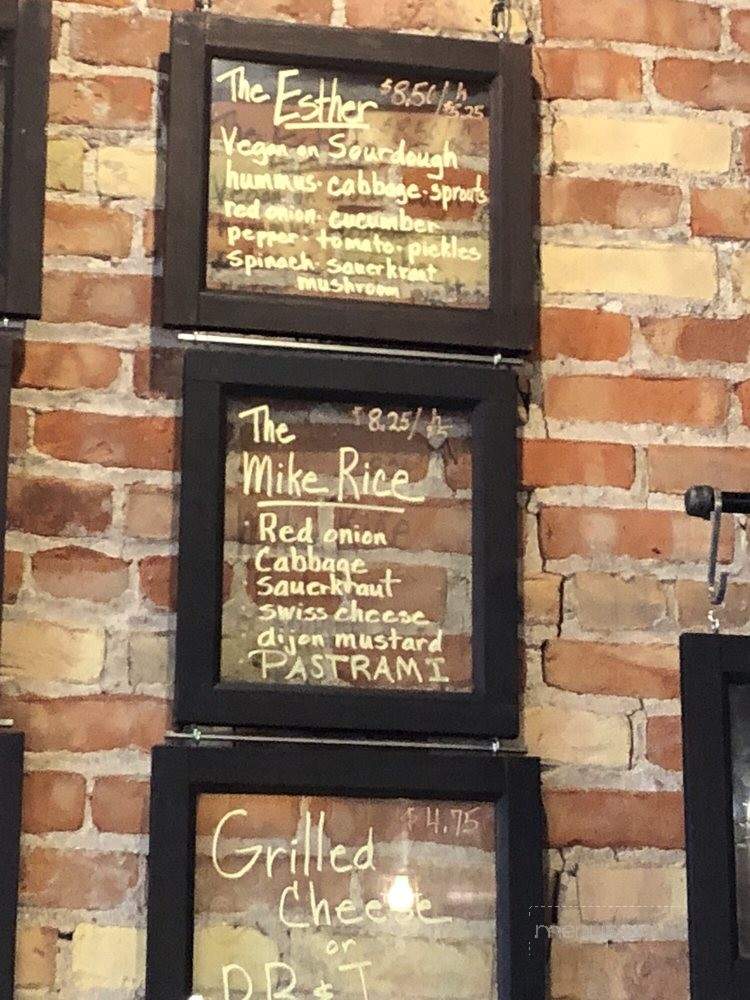 The Esther $8.50/ h $5.25
Vegan on Sourdough
hummus · cabbage · sprouts
red onion · cucumber
pepper · tomato · pickles
Spinach · sauerkraut
mushroom
The $8.25/ h
Mike Rice
· Red onion
Cabbage
Sauerkraut
· swiss cheese
· dijon mustard
· PASTRAMI
Grilled $4.75
Cheese
or
PB & J